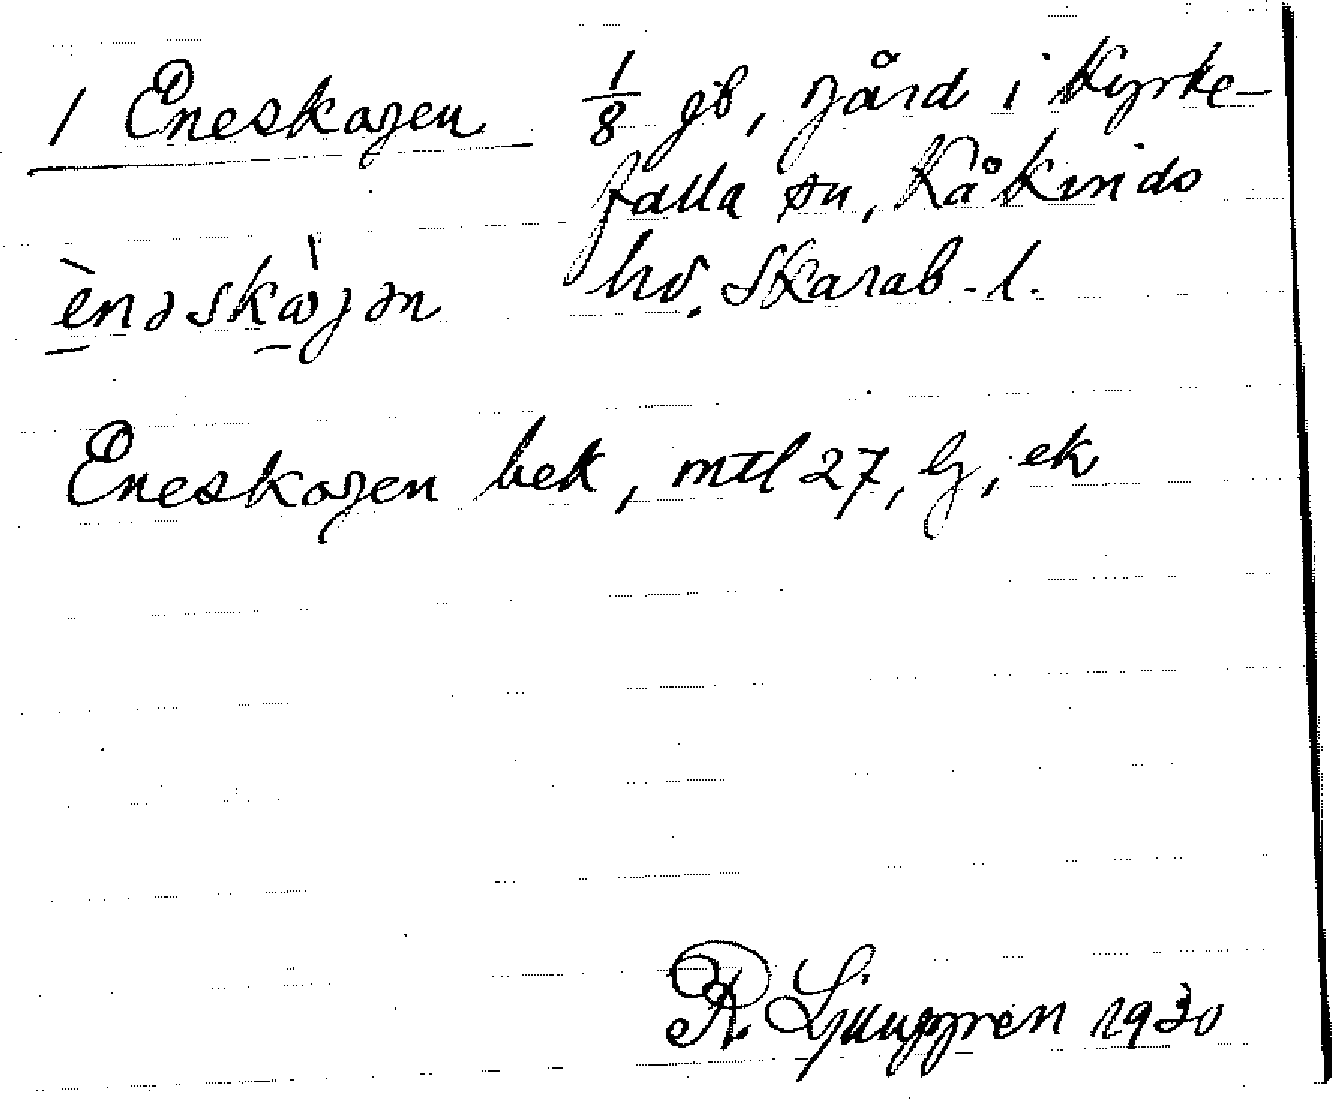 1 Eneskogen 1/8 gb, gård i Kyrke-
falla sn, Kåkinds
hd. Skarab. l.
ènəskògən
Eneskogen bek, mtl 27, Gj, ek
R. Ljunggren 1930